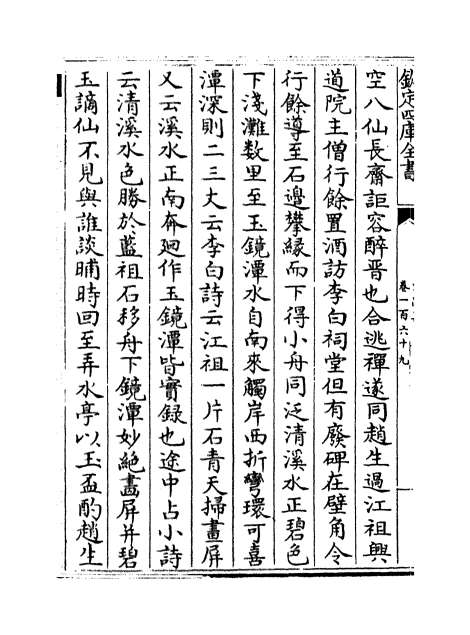 欽定四庫全書
卷一百六十九
空八仙長齋詎容醉晋也合逃禪遂同趙生過江祖興
道院主僧行餘置酒訪李白祠堂但有廢碑在壁角令
行餘導至石邊攀縁而下得小舟同泛清溪水正碧色
下淺灘数里至玉鏡潭水自南來觸岸西折彎環可喜
潭深則二三丈云李白詩云江祖一片石青天掃畫屏
又云溪水正南奔廻作玉鏡潭皆實録也途中占小詩
云清溪水色勝於藍祖石移舟下鏡潭妙絶畫屏并碧
玉謫仙不見與誰談晡時回至弄水亭以玉盃酌趙生